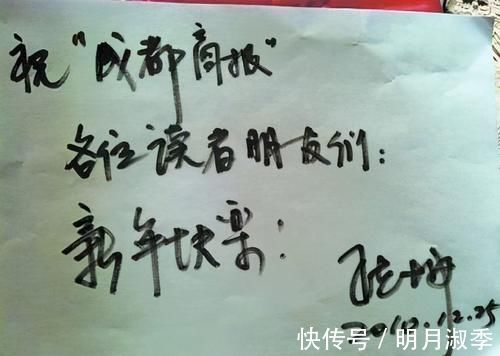 祝“成都商报”
各位读者朋友们：
新年快乐！
12.25
快传号／明月淑季